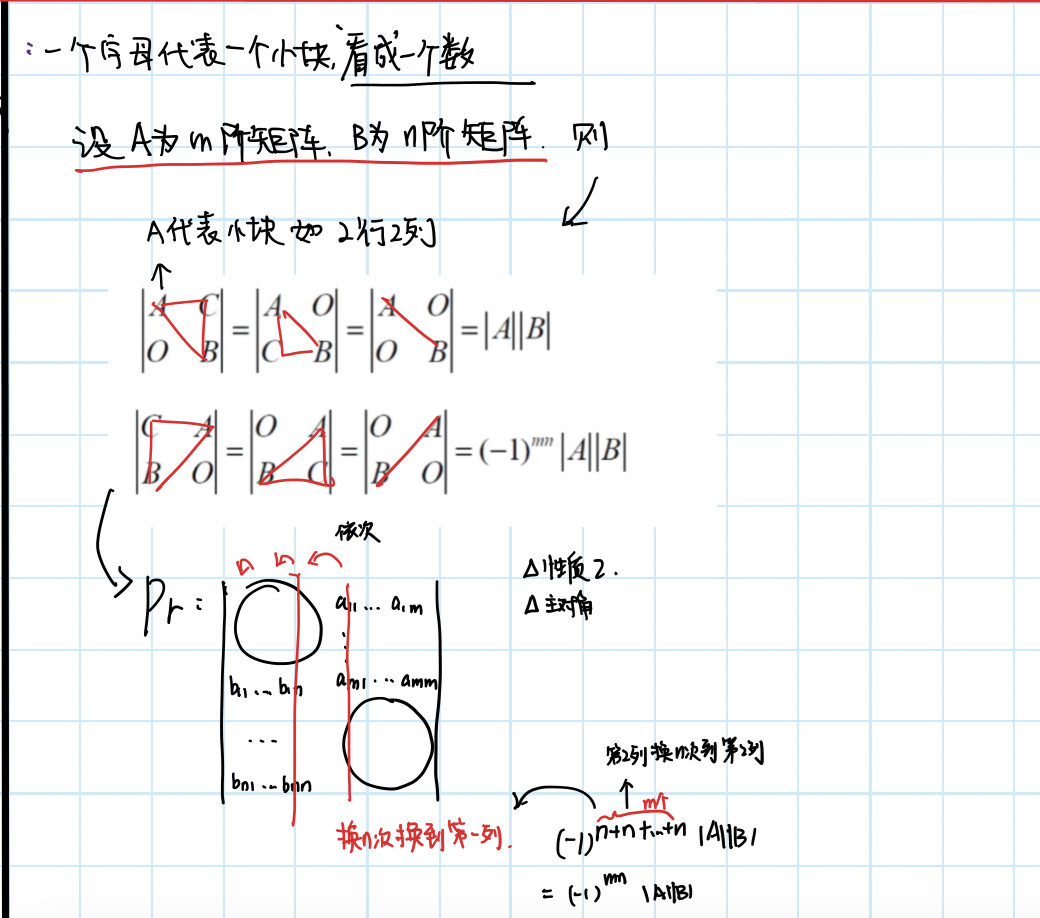 ：一个字母代表一个小块,看成一个数
设 A为 m 阶矩阵, B为 n阶 矩阵. 则
A代表小块 如 2行2列
|A C; O B| = |A O; C B| = |A O; O B| = |A||B|
|C A; B O| = |O A; B C| = |O A; B O| = (-1)^{mn} |A||B|
依次
Pr:
a₁₁ … a₁ₘ
⋮
b₁₁ … b₁ₙ aₘ₁ … aₘₘ
…
bₙ₁ … bₙₙ
换n次换到第一列.
Δ性质2.
Δ主对角
第2列换n次到第2列
m个
(-1)^{n+n+…+n} |A||B|
= (-1)^{mn} |A||B|